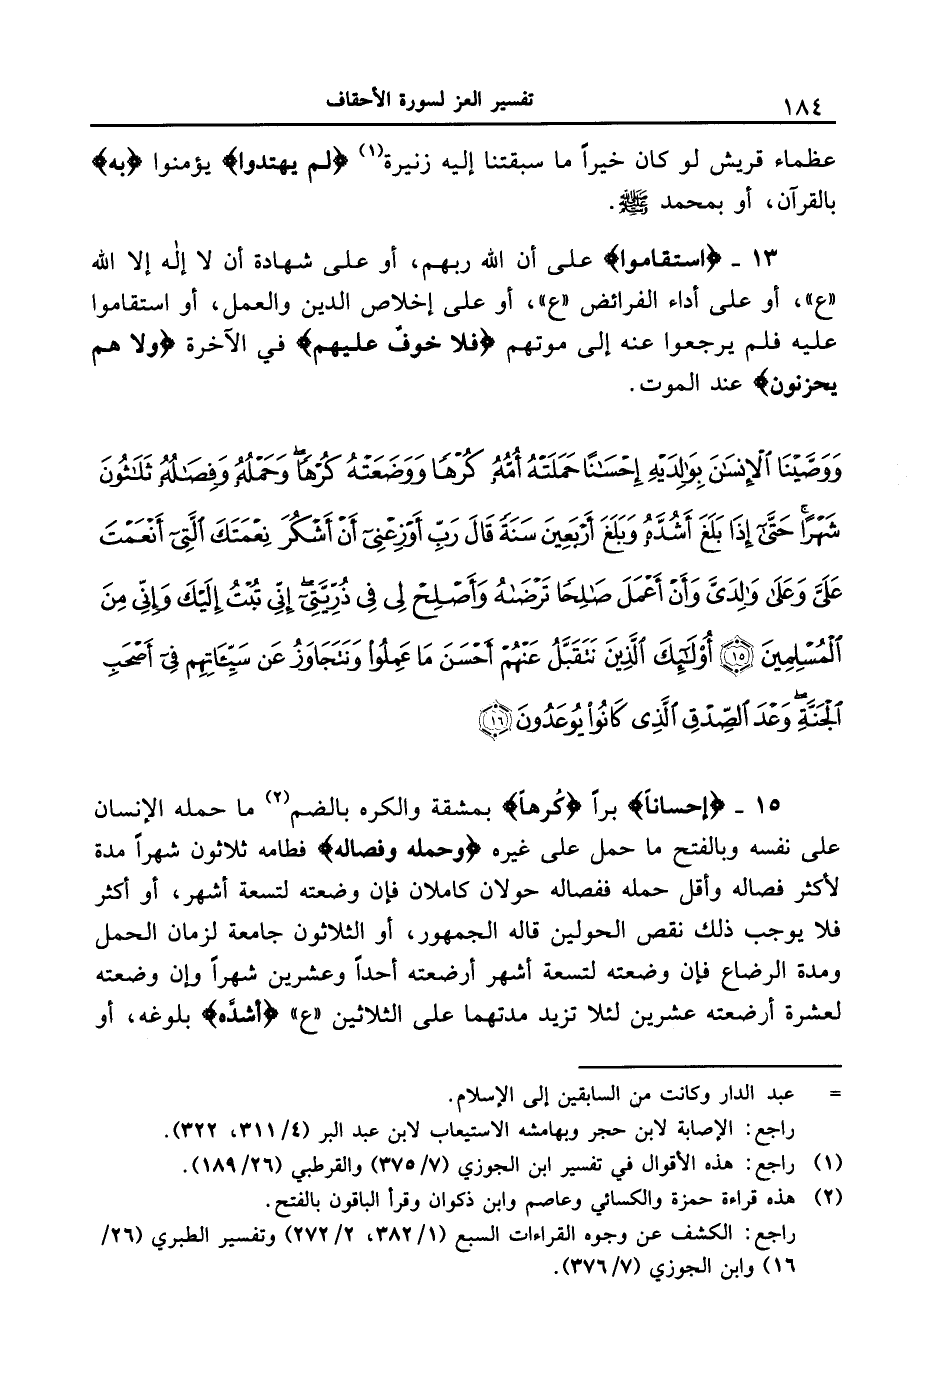 ١٨٤ تفسير العز لسورة الأحقاف
عظماء قريش لو كان خيراً ما سبقتنا إليه زنيرة(١) ﴿لم يهتدوا﴾ يؤمنوا ﴿به﴾
بالقرآن، أو بمحمد ﷺ.
١٣ ـ ﴿استقاموا﴾ على أن الله ربهم، أو على شهادة أن لا إلٰه إلا الله
«ع»، أو على أداء الفرائض «ع»، أو على إخلاص الدين والعمل، أو استقاموا
عليه فلم يرجعوا عنه إلى موتهم ﴿فلا خوفٌ عليهم﴾ في الآخرة ﴿ولا هم
يحزنون﴾ عند الموت.
وَوَصَّيْنَا ٱلْإِنسَٰنَ بِوَٰلِدَيْهِ إِحْسَٰنًا حَمَلَتْهُ أُمُّهُۥ كُرْهًا وَوَضَعَتْهُ كُرْهًا ۖ وَحَمْلُهُۥ وَفِصَٰلُهُۥ ثَلَٰثُونَ
شَهْرًا ۚ حَتَّىٰٓ إِذَا بَلَغَ أَشُدَّهُۥ وَبَلَغَ أَرْبَعِينَ سَنَةً قَالَ رَبِّ أَوْزِعْنِىٓ أَنْ أَشْكُرَ نِعْمَتَكَ ٱلَّتِىٓ أَنْعَمْتَ
عَلَىَّ وَعَلَىٰ وَٰلِدَىَّ وَأَنْ أَعْمَلَ صَٰلِحًا تَرْضَىٰهُ وَأَصْلِحْ لِى فِى ذُرِّيَّتِىٓ ۖ إِنِّى تُبْتُ إِلَيْكَ وَإِنِّى مِنَ
ٱلْمُسْلِمِينَ ﴿١٥﴾ أُو۟لَٰٓئِكَ ٱلَّذِينَ نَتَقَبَّلُ عَنْهُمْ أَحْسَنَ مَا عَمِلُوا۟ وَنَتَجَاوَزُ عَن سَيِّـَٔاتِهِمْ فِىٓ أَصْحَٰبِ
ٱلْجَنَّةِ ۖ وَعْدَ ٱلصِّدْقِ ٱلَّذِى كَانُوا۟ يُوعَدُونَ ﴿١٦﴾
١٥ ـ ﴿إحساناً﴾ براً ﴿كُرهاً﴾ بمشقة والكره بالضم(٢) ما حمله الإنسان
على نفسه وبالفتح ما حمل على غيره ﴿وحمله وفصاله﴾ فطامه ثلاثون شهراً مدة
لأكثر فصاله وأقل حمله ففصاله حولان كاملان فإن وضعته لتسعة أشهر، أو أكثر
فلا يوجب ذلك نقص الحولين قاله الجمهور، أو الثلاثون جامعة لزمان الحمل
ومدة الرضاع فإن وضعته لتسعة أشهر أرضعته أحداً وعشرين شهراً وإن وضعته
لعشرة أرضعته عشرين لئلا تزيد مدتهما على الثلاثين «ع» ﴿أشدَّه﴾ بلوغه، أو
= عبد الدار وكانت من السابقين إلى الإسلام.
راجع: الإصابة لابن حجر وبهامشه الاستيعاب لابن عبد البر (٤/ ٣١١، ٣٢٢).
(١) راجع: هذه الأقوال في تفسير ابن الجوزي (٧/ ٣٧٥) والقرطبي (٢٦/ ١٨٩).
(٢) هذه قراءة حمزة والكسائي وعاصم وابن ذكوان وقرأ الباقون بالفتح.
راجع: الكشف عن وجوه القراءات السبع (١/ ٣٨٢، ٢/ ٢٧٢) وتفسير الطبري (٢٦/
١٦) وابن الجوزي (٧/ ٣٧٦).